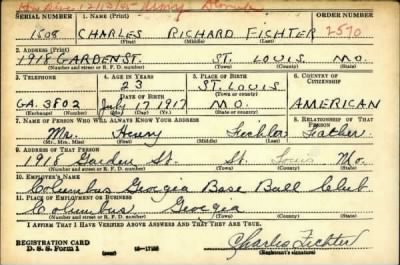 SERIAL NUMBER 1. NAME (Print) ORDER NUMBER
1608 CHARLES RICHARD FICHTER 2570
(First) (Middle) (Last)
2. ADDRESS (Print)
1918 GARDEN ST. ST. LOUIS MO.
(Number and street or R. F. D. number) (Town) (County) (State)
3. TELEPHONE 4. AGE IN YEARS 5. PLACE OF BIRTH 6. COUNTRY OF CITIZENSHIP
23 ST. LOUIS
DATE OF BIRTH (Town or county)
GA. 3802 July 17 1917 MO. AMERICAN
(Exchange) (Number) (Mo.) (Day) (Yr.) (State or country)
7. NAME OF PERSON WHO WILL ALWAYS KNOW YOUR ADDRESS 8. RELATIONSHIP OF THAT PERSON
Mr. Henry Father
(Mr., Mrs., Miss) (First) (Middle) (Last)
9. ADDRESS OF THAT PERSON
1918 Garden St. St. Louis Mo.
(Number and street or R. F. D. number) (Town) (County) (State)
10. EMPLOYER'S NAME
Columbus Georgia Base Ball Club
11. PLACE OF EMPLOYMENT OR BUSINESS
Columbus Georgia
(Number and street or R. F. D. number) (Town) (County) (State)
I AFFIRM THAT I HAVE VERIFIED ABOVE ANSWERS AND THAT THEY ARE TRUE.
REGISTRATION CARD
D. S. S. Form 1 (over) Charles Fichter
(Registrant's signature)